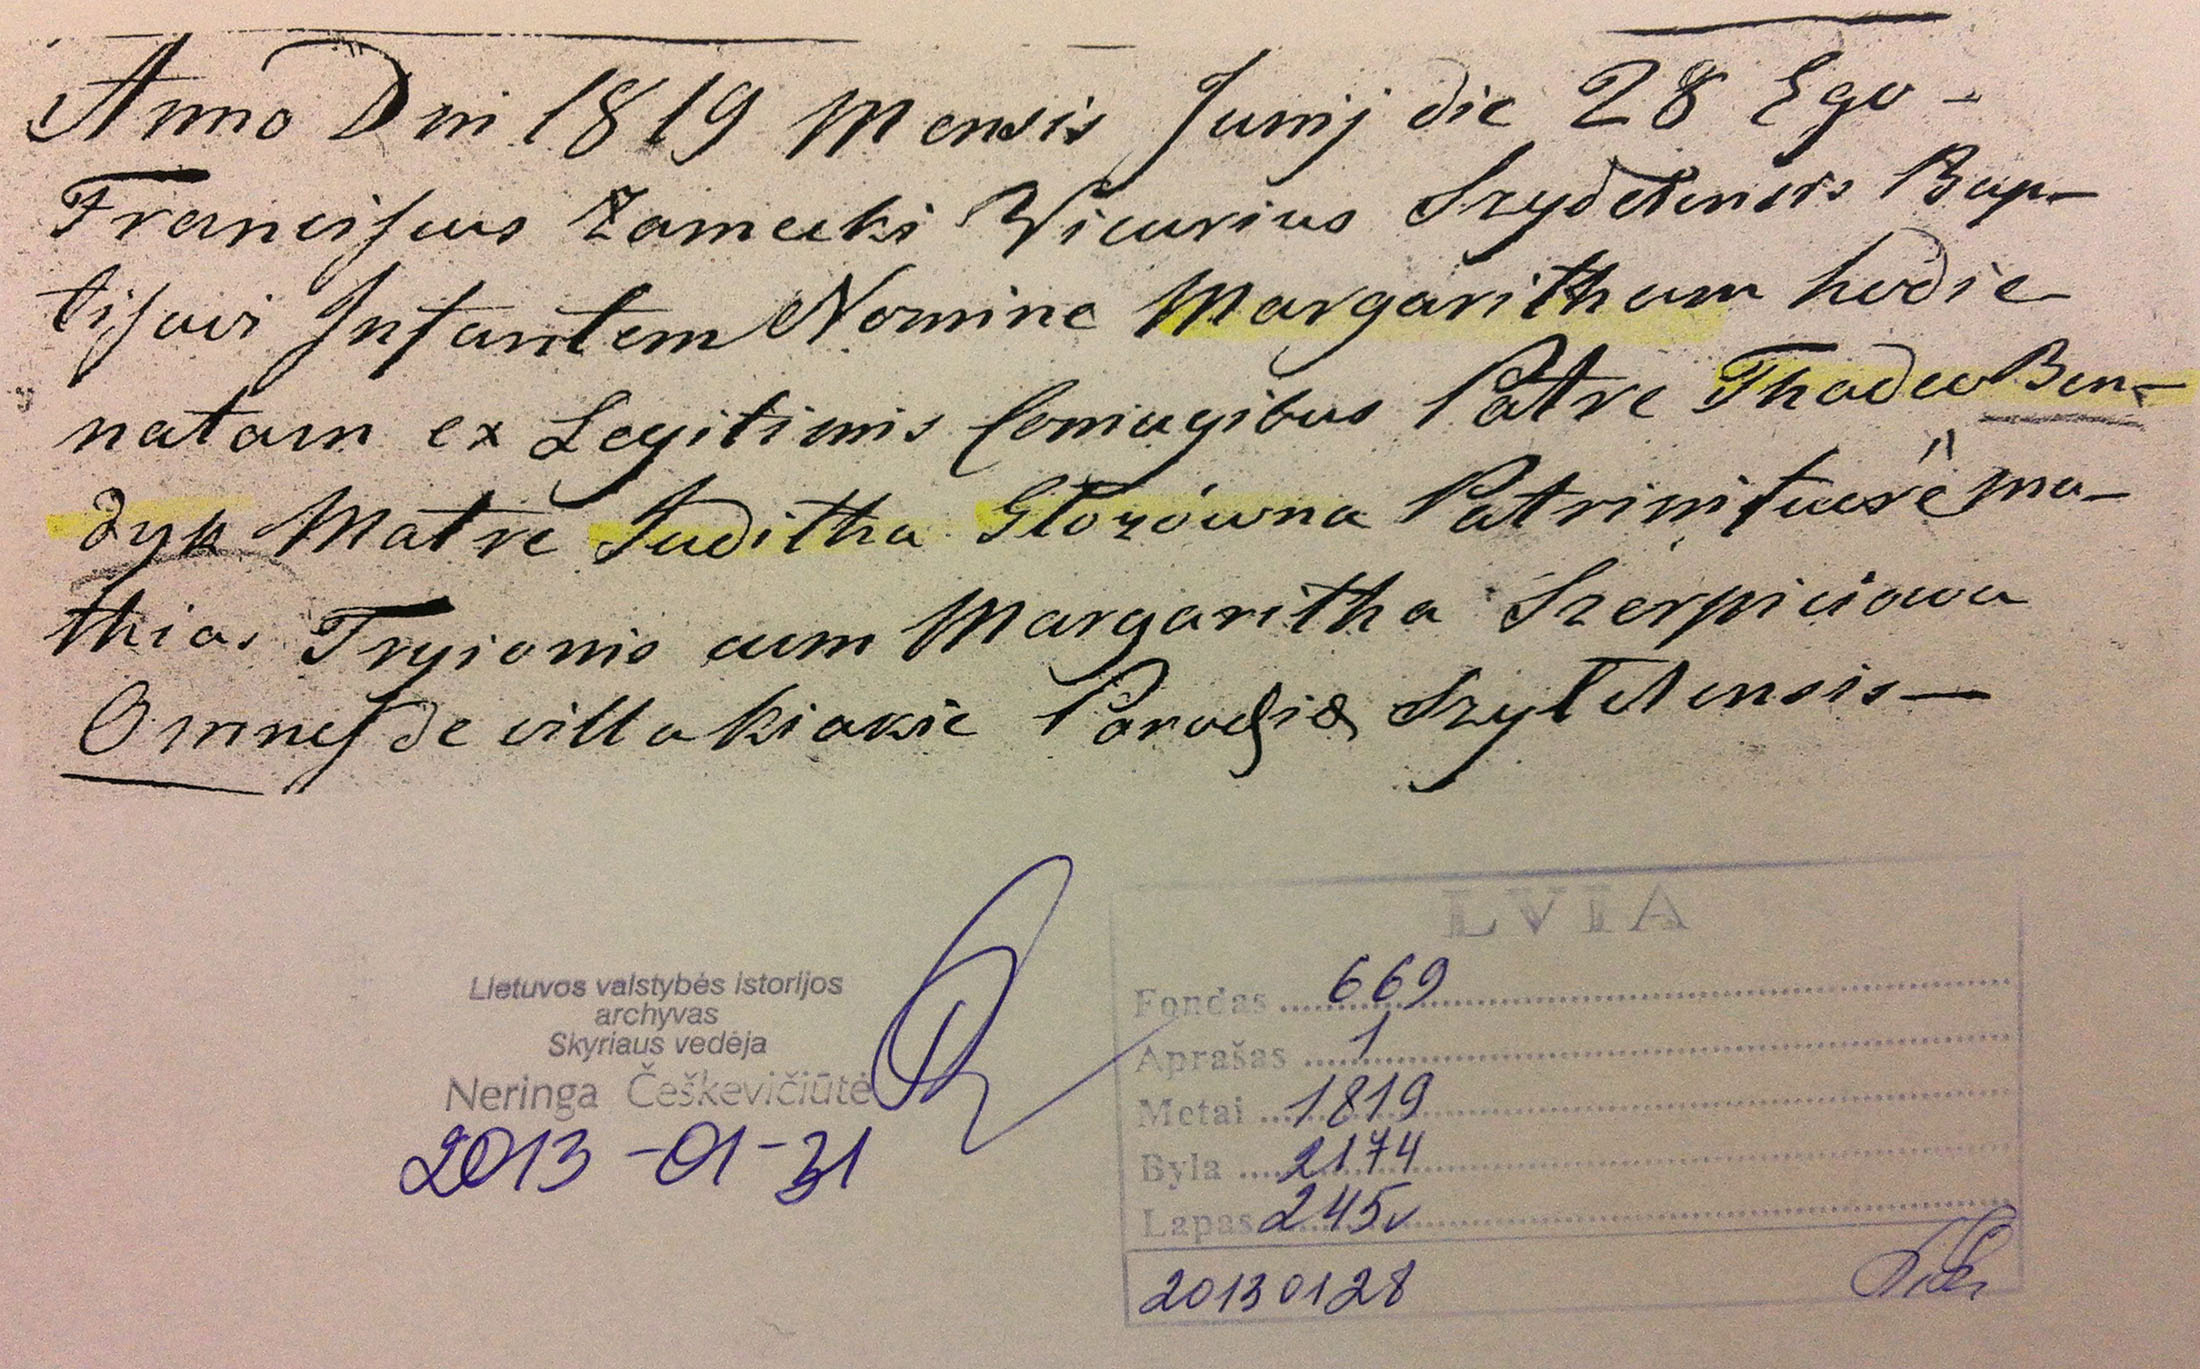 Anno Dni 1819 Mensis Junij die 28 Ego -
Francisus Zamecki Vicarius Szydetensis Bap-
tisavi Infantem Nomine Margaritham hodie
natam ex Legitimis Coniugibus Patre Thadeo Ben-
dyk Matre Juditha Patrini fuere Ma-
thias Tryionis cum Margaritha Szerpiciowa
Omnes de villa Kiakie Parochiæ
Lietuvos valstybės istorijos
archyvas
Skyriaus vedėja
Neringa Češkevičiūtė
2013-01-31
LVIA
Fondas 669
Aprašas 1
Metai 1819
Byla 2174
Lapas 245v
20130128